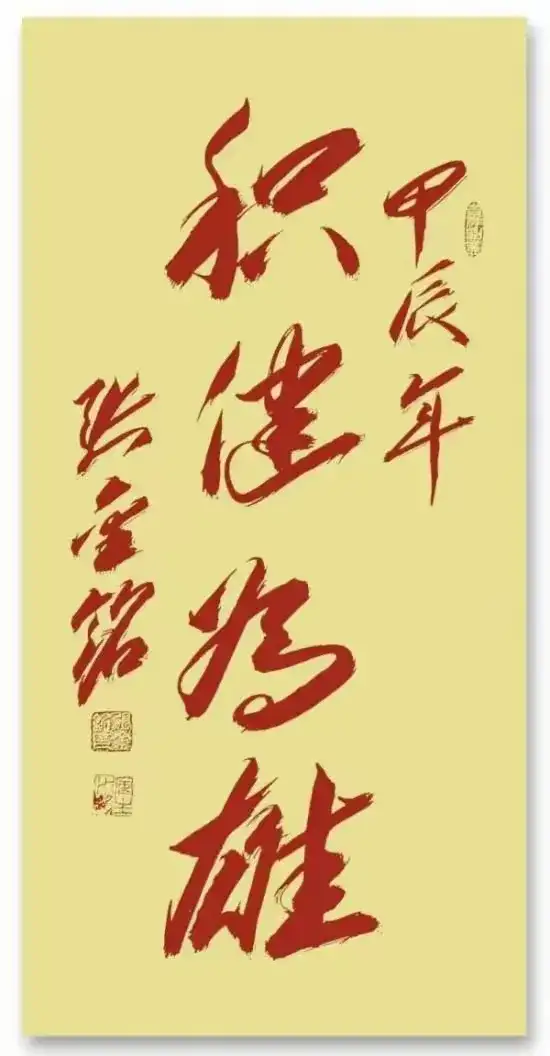 甲辰年
积健为雄
张